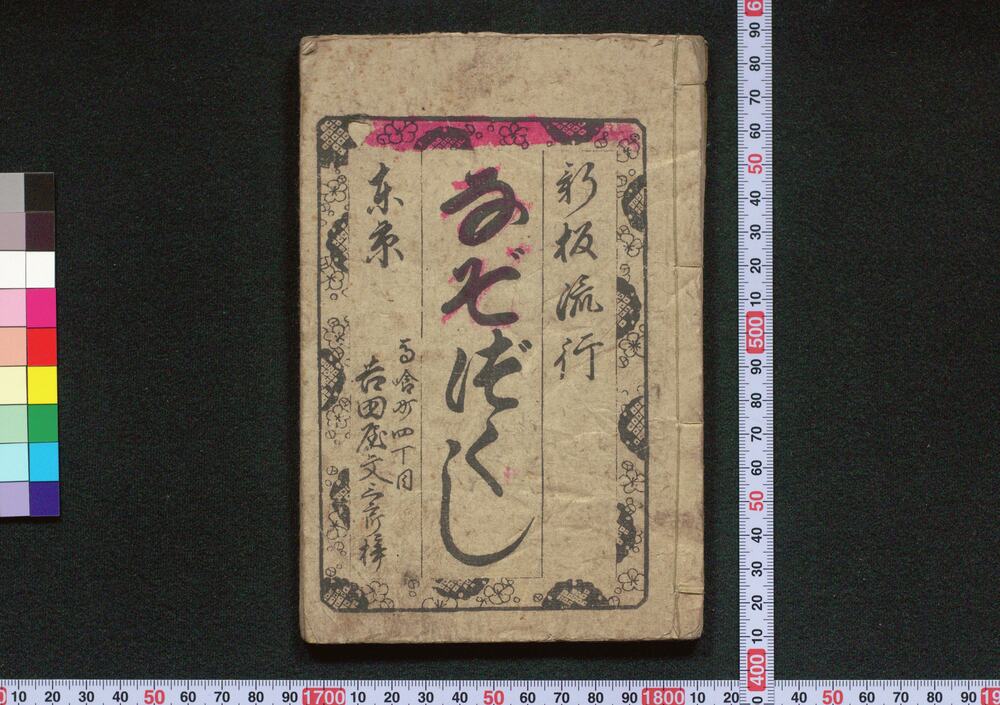 新板流行
なぞづくし
東京
馬喰町四丁目
吉田屋文三郎梓
60
90
80
70
60
50
40
30
20
10
500
90
80
70
60
50
40
30
20
10
400
10 20 30 40 50 60 70 80 90 1700 10 20 30 40 50 60 70 80 90 1800 10 20 40 50 60 70 80 90